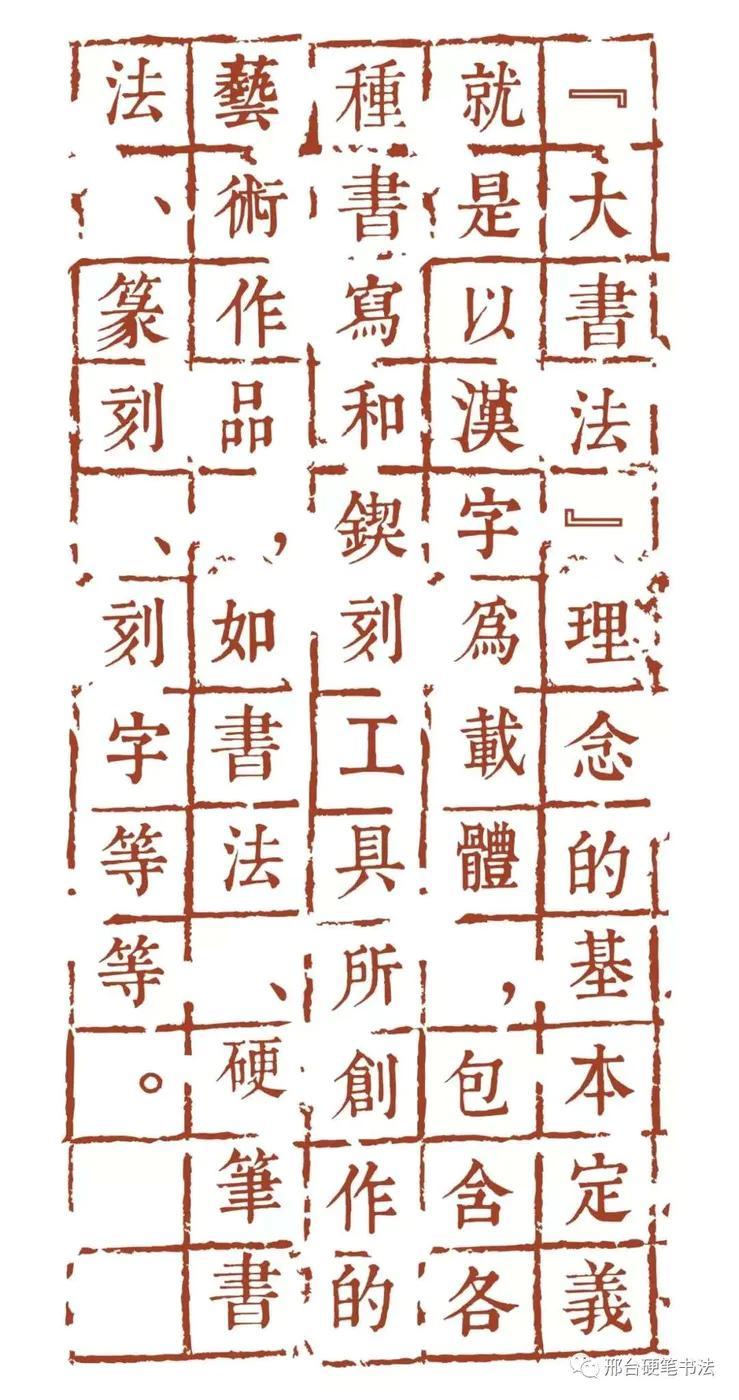 『大書法』理念的基本定義
就是以漢字爲載體，包含各
種書寫和鍥刻工具所創作的
藝術作品，如書法、硬筆書
法、篆刻、刻字等等。
邢台硬笔书法